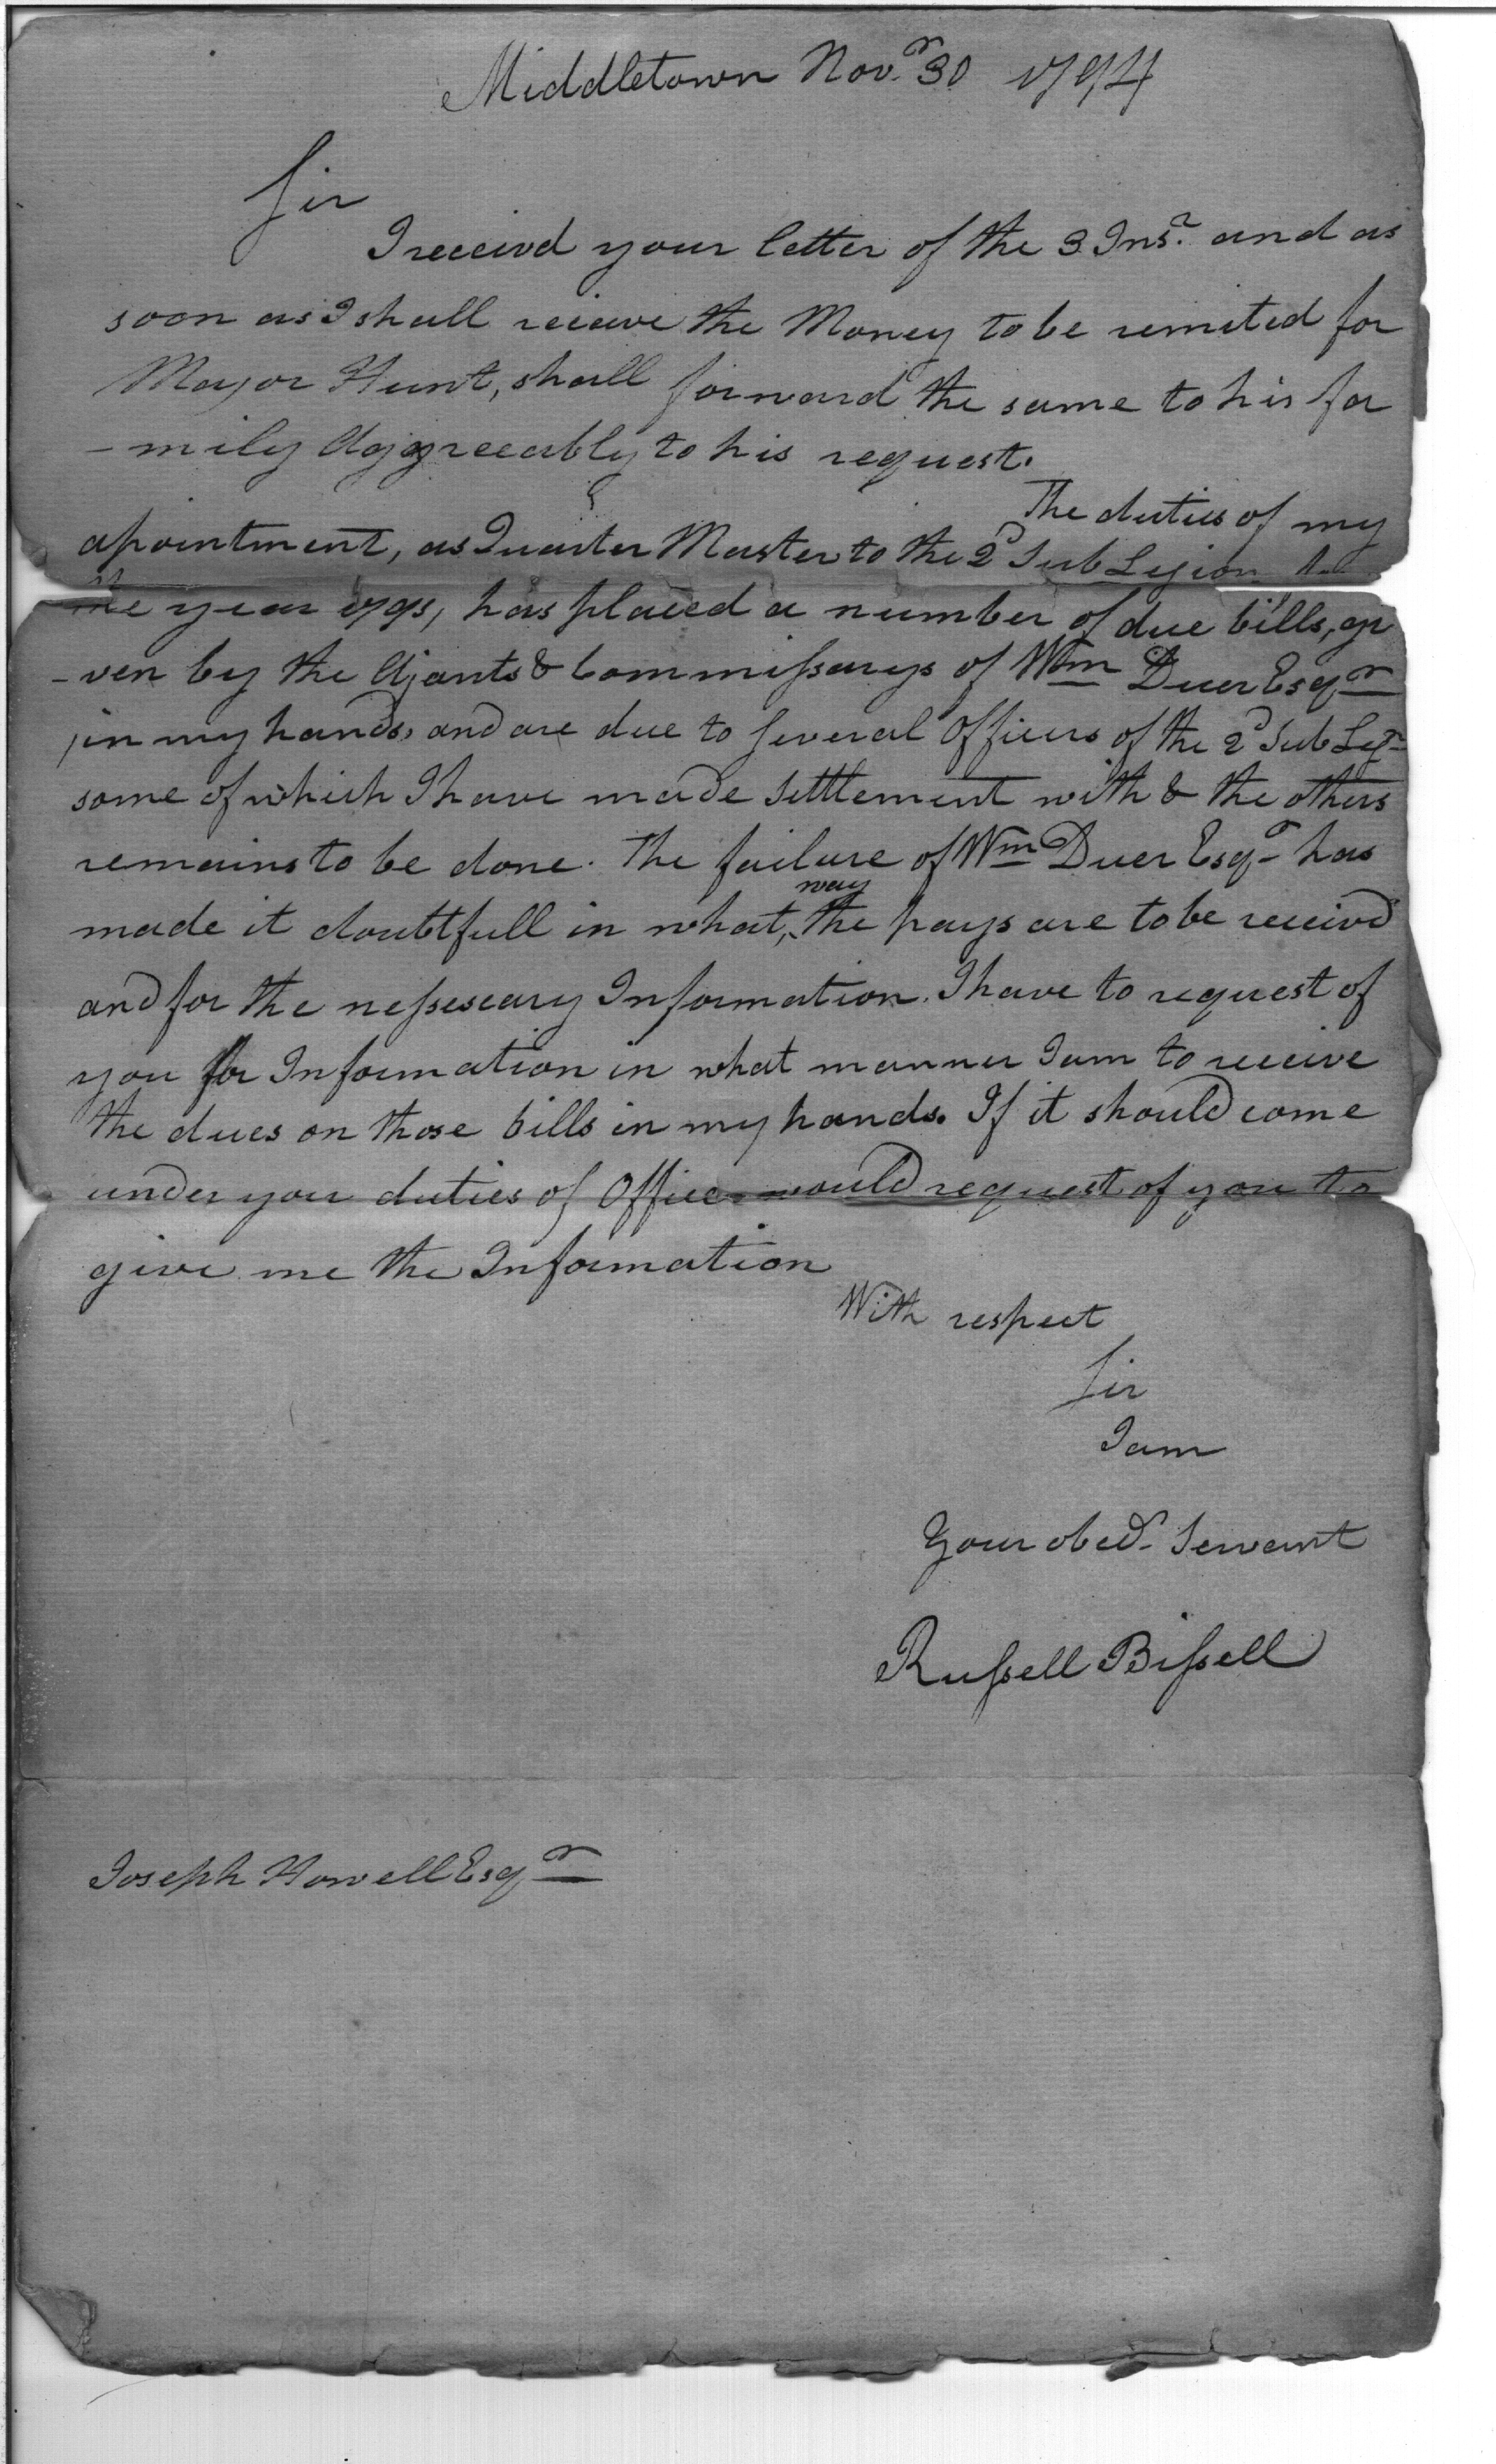 Middletown Nov.r 30 1794
Sir
I receivd your letter of the 3 Inst. and as
soon as I shall receive the Money to be remited for
Mayor Hunt, shall forward the same to his fa
-mily Aggreeably to his request.
The duties of my
apointment, as Quarter Master to the 2d Sub Legion
the year has placed a number of due bills, gi
-ven by the Ajants & Commissarys of Wm Duer Esqr
in my hands, and are due to several Officers of the 2d Sub Legn
some of which I have made settlement with & the others
remains to be done. The failure of Wm Duer Esqr has
way
made it doubtfull in what, the pays are to be receivd
and for the nessescary Information. I have to request of
you for Information in what manner I am to receive
the dues on those bills in my hands. If it should come
under your duties of Office would request of you to
give me the Information
With respect
Sir
I am
Your obedr Servant
Russell Bissell
Joseph Howell Esqr